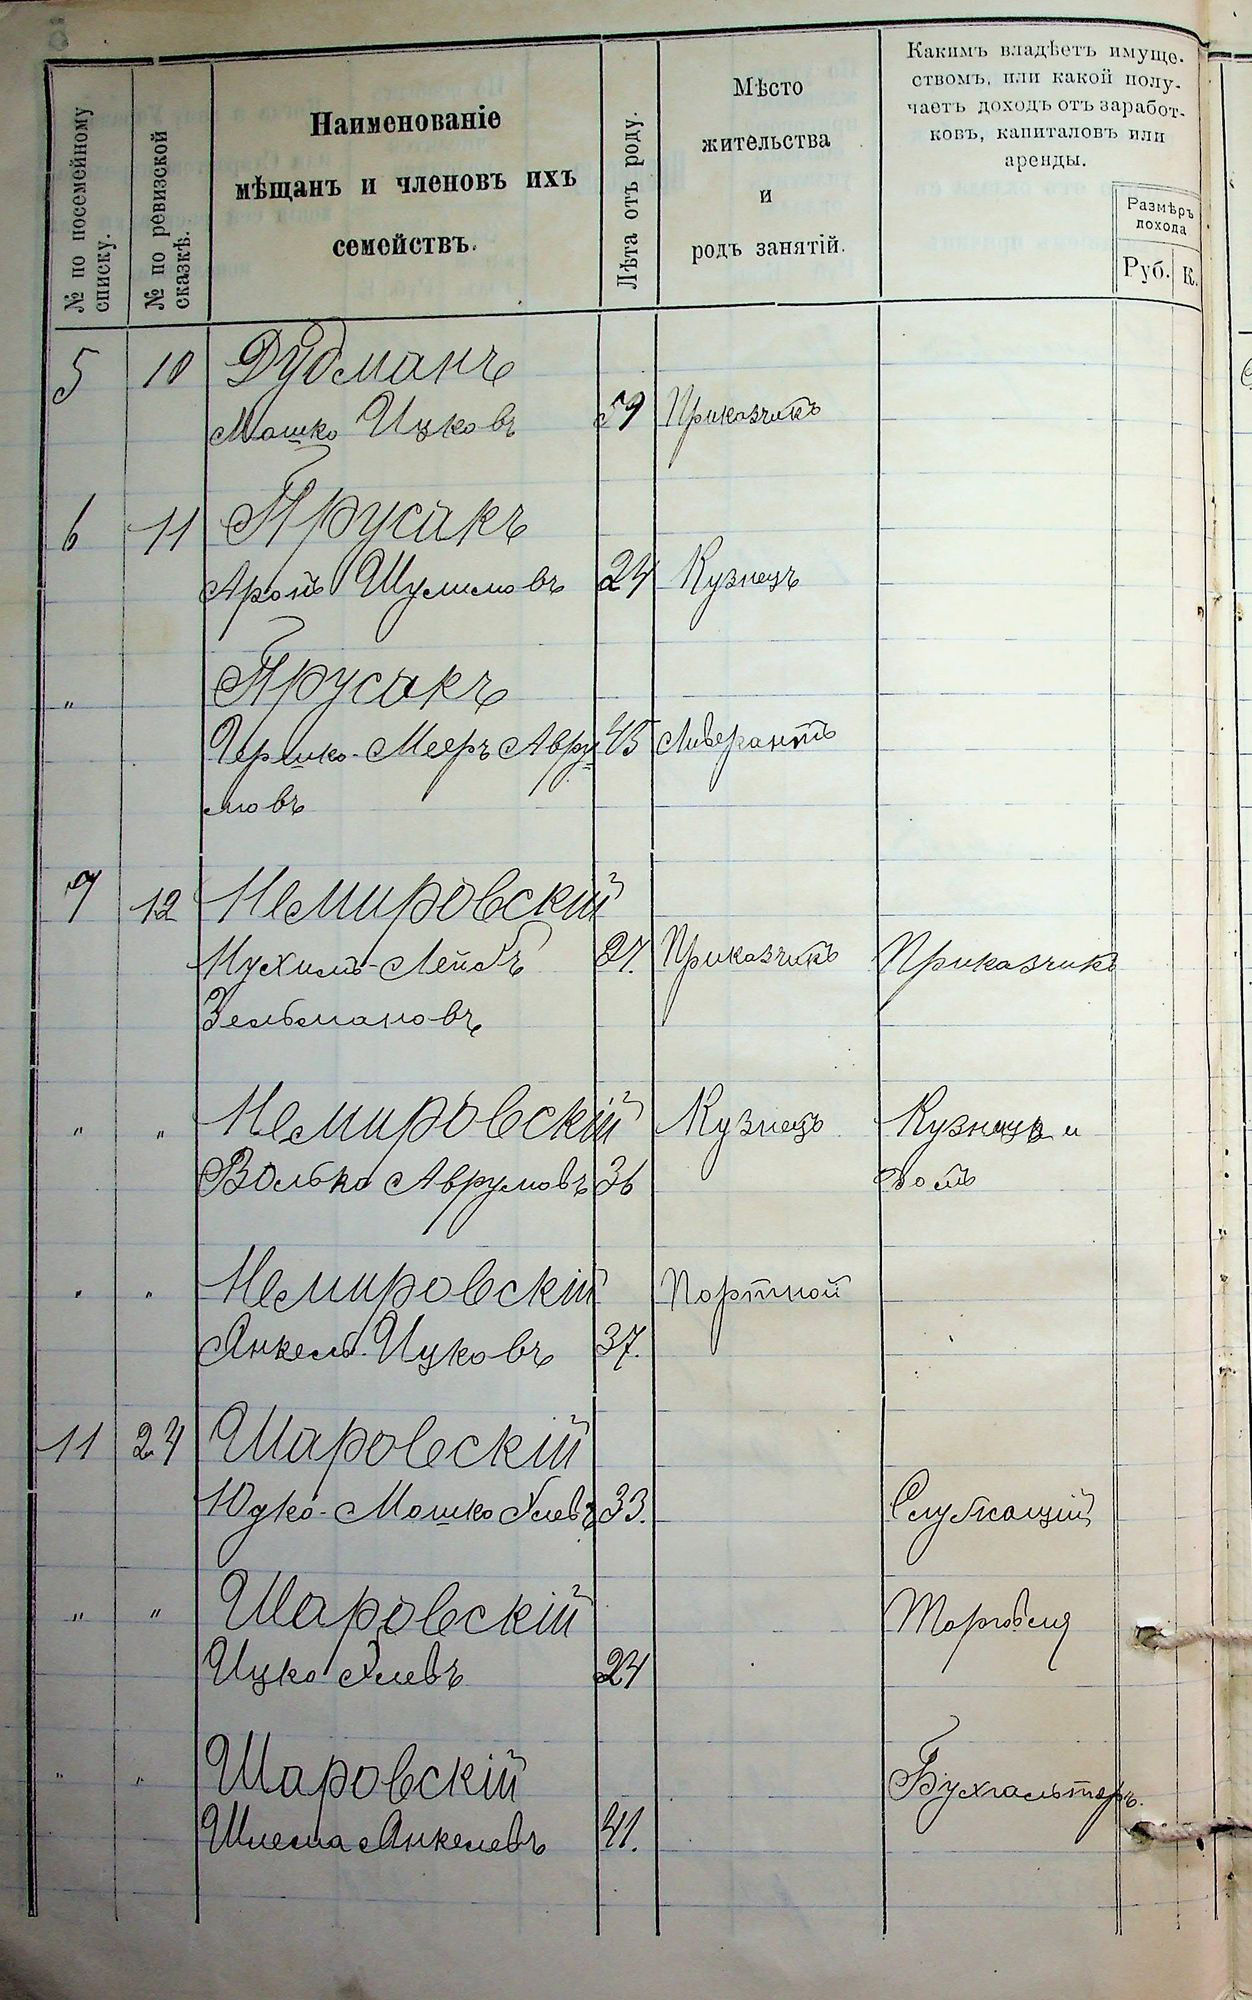 № по посемейному списку.
№ по ревизской сказкѣ.
Наименованіе
мѣщанъ и членовъ ихъ
семействъ.
Лѣта отъ роду.
Мѣсто
жительства
и
родъ занятій.
Какимъ владѣетъ имуще-
ствомъ, или какой полу-
чаетъ доходъ отъ заработ-
ковъ, капиталовъ или
аренды.
Размѣръ
дохода
Руб. К.
5 10 Дудманъ
Мошко Ицковъ 59 Приказчикъ
6 11 Прусакъ
Аронъ Шулимовъ 24 Кузнецъ
" Прусакъ
Гершко-Мееръ Авру 45 Ливерантъ
мовъ
7 12 Немировскій
Нухимъ-Лейбъ 27. Приказчикъ Приказчикъ
Зельмановъ
" " Немировскій Кузнецъ Кузнецъ и
Волько Аврумовъ 36 домъ
" " Немировскій Портной
Янкель Ицковъ 37.
11 24 Шаровскій
Юдко-Мошко 33. Служащій
" " Шаровскій Торговля
Ицко 24
" " Шаровскій Бухгальтеръ.
Шлема Янкелевъ 41.